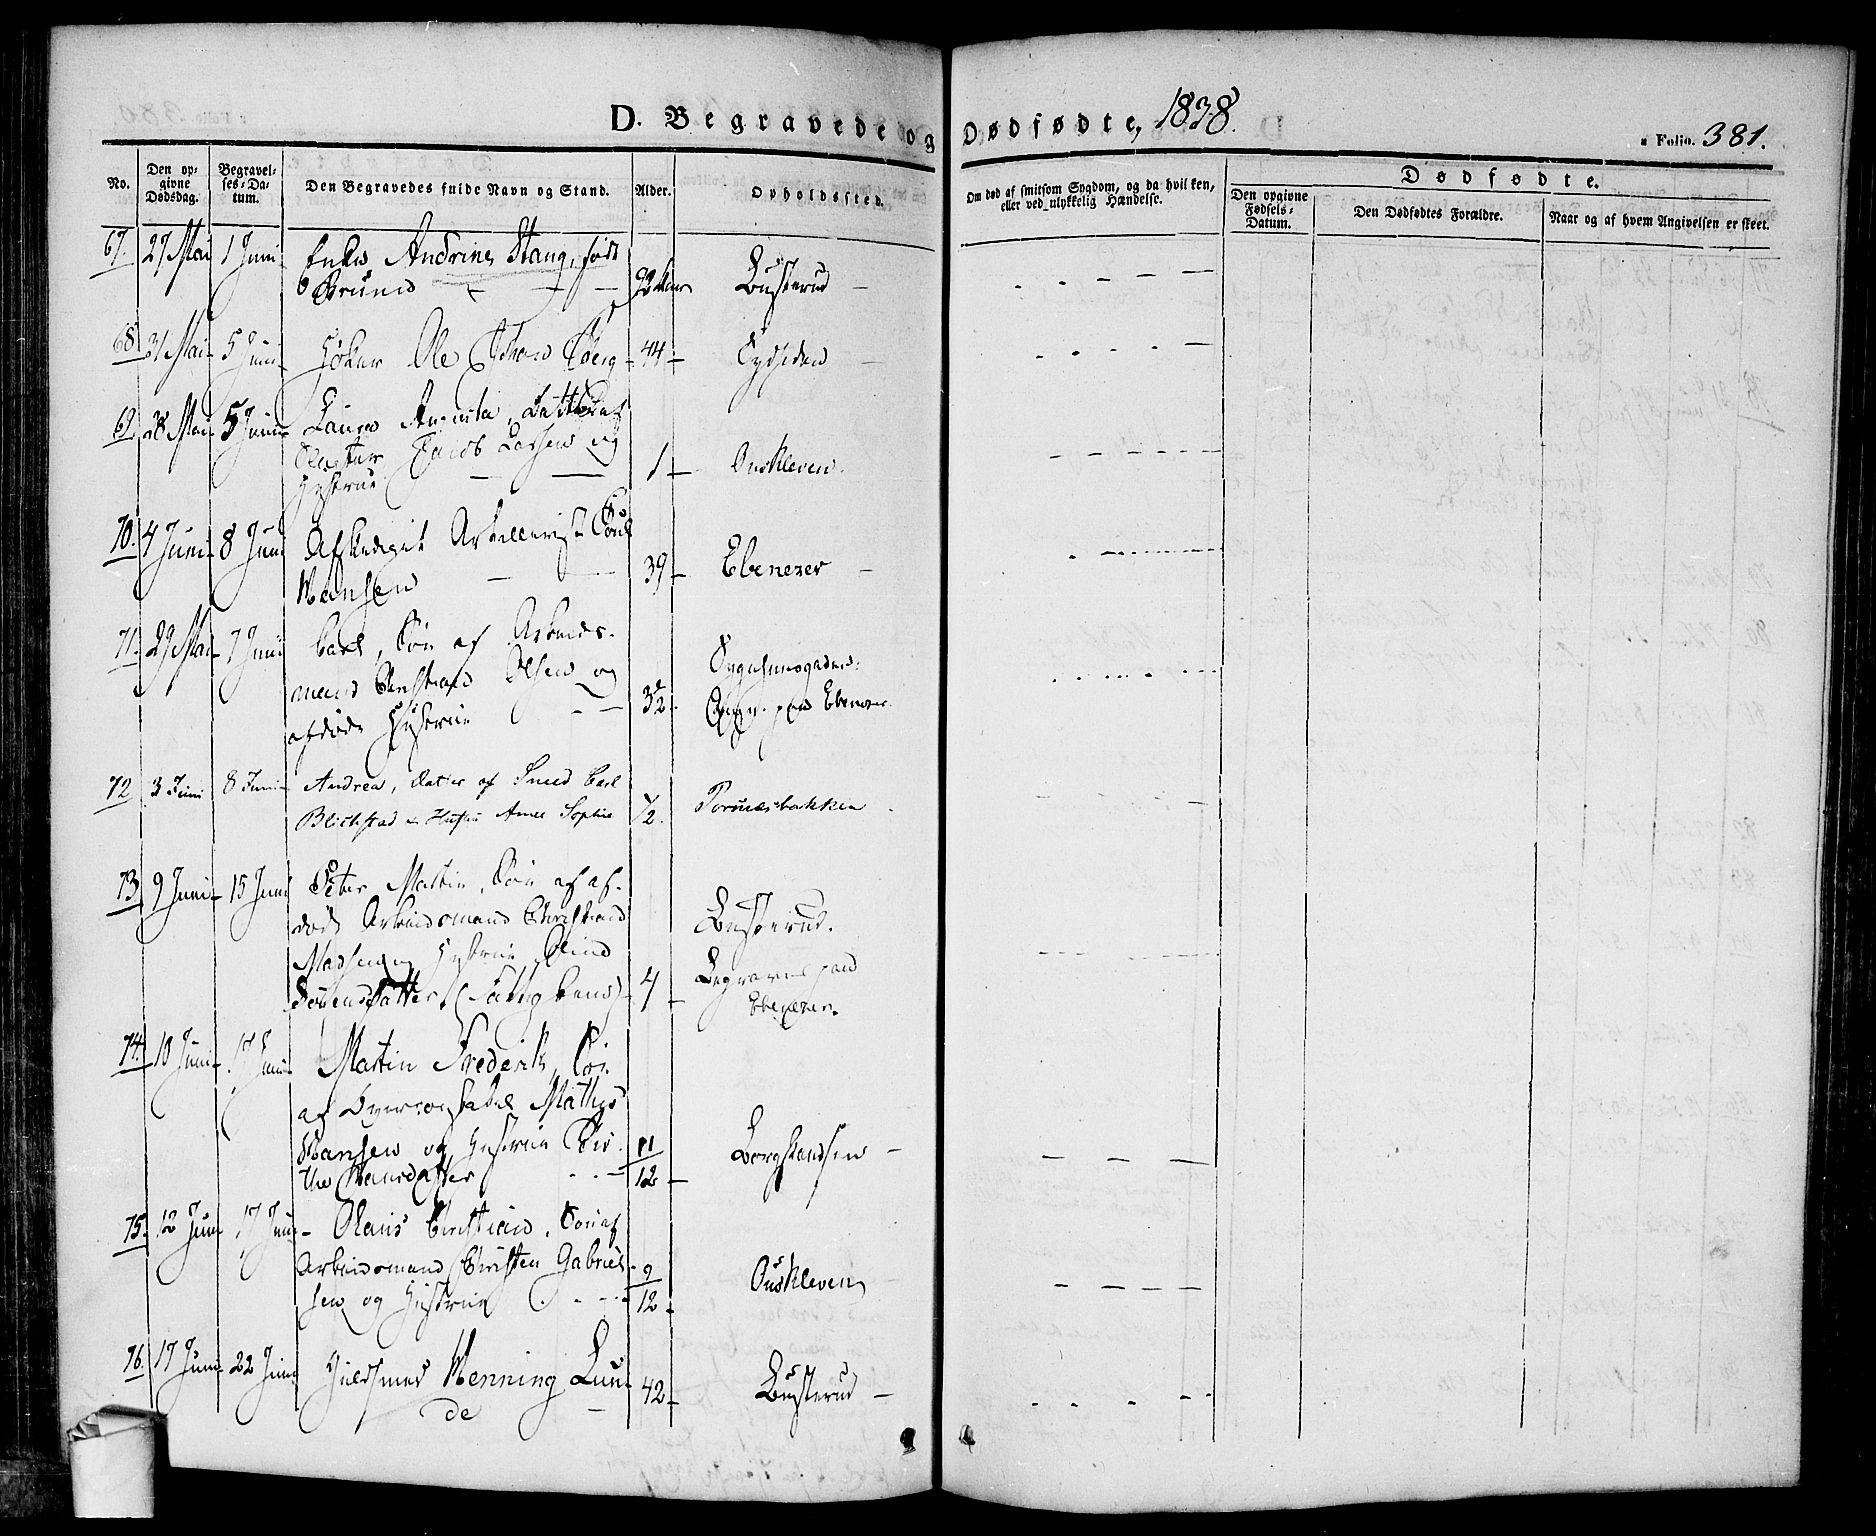 D. Begravede og Dødfødte, 1838.
Folio. 381.
No.
Den op-
givne
Dødsdag.
Begravel-
ses-Da-
tum.
Den Begravedes fulde Navn og Stand.
Alder.
Opholdssted.
Om død af smitsom Sygdom, og da hvilken,
eller ved ulykkelig Hændelse.
Dødfødte.
Den opgivne
Fødsels-
Datum.
Den Dødfødtes Forældre.
Naar og af hvem Angivelsen er skeet.
67. 27 Mai 1 Juni Enke Andrine Stang, født
Brun Busterud
68. 31 Mai 5 Juni Høker Ole Johan 44 Sydsiden
69. 28 Mai 5 Juni Laura Augusta, Datter af
Jacob Larsen og
Hustrue 1 Ouskleven.
70. 4 Juni 8 Juni Afskediget Artillerist Poul
Hansen 39 Ebenezer
71. 29 Mai 7 Juni Carl, Søn af Arbeids-
mand Christian Olsen og
afdøde Hustrue 3½
paa Ebenezer
72 3 Juni 8 Juni Andrea, Datter af Smed Carl
Blichstad Anne Sophie ½. Tornæsbakken
73 9 Juni 15 Juni Peter Martin, Søn af af-
døde Arbeidsmand Christian
Madsen og Hustrue Oline
Sørensdatter. 4
Busterud.
Begraven paa
Ebenezer.
74. 10 Juni 17 Juni Martin Frederik, Søn
af Mathis
Hansen og Hustrue
the Hansdatter 11/12
75. 12 Juni 17 Juni Olaus Christian, Søn af
Arbeidsmand Christen Gabriel-
sen og Hustrue 9/12 Ouskleven
76. 17 Juni 22 Juni Guldsmed Henning Lun-
de 42 Busterud